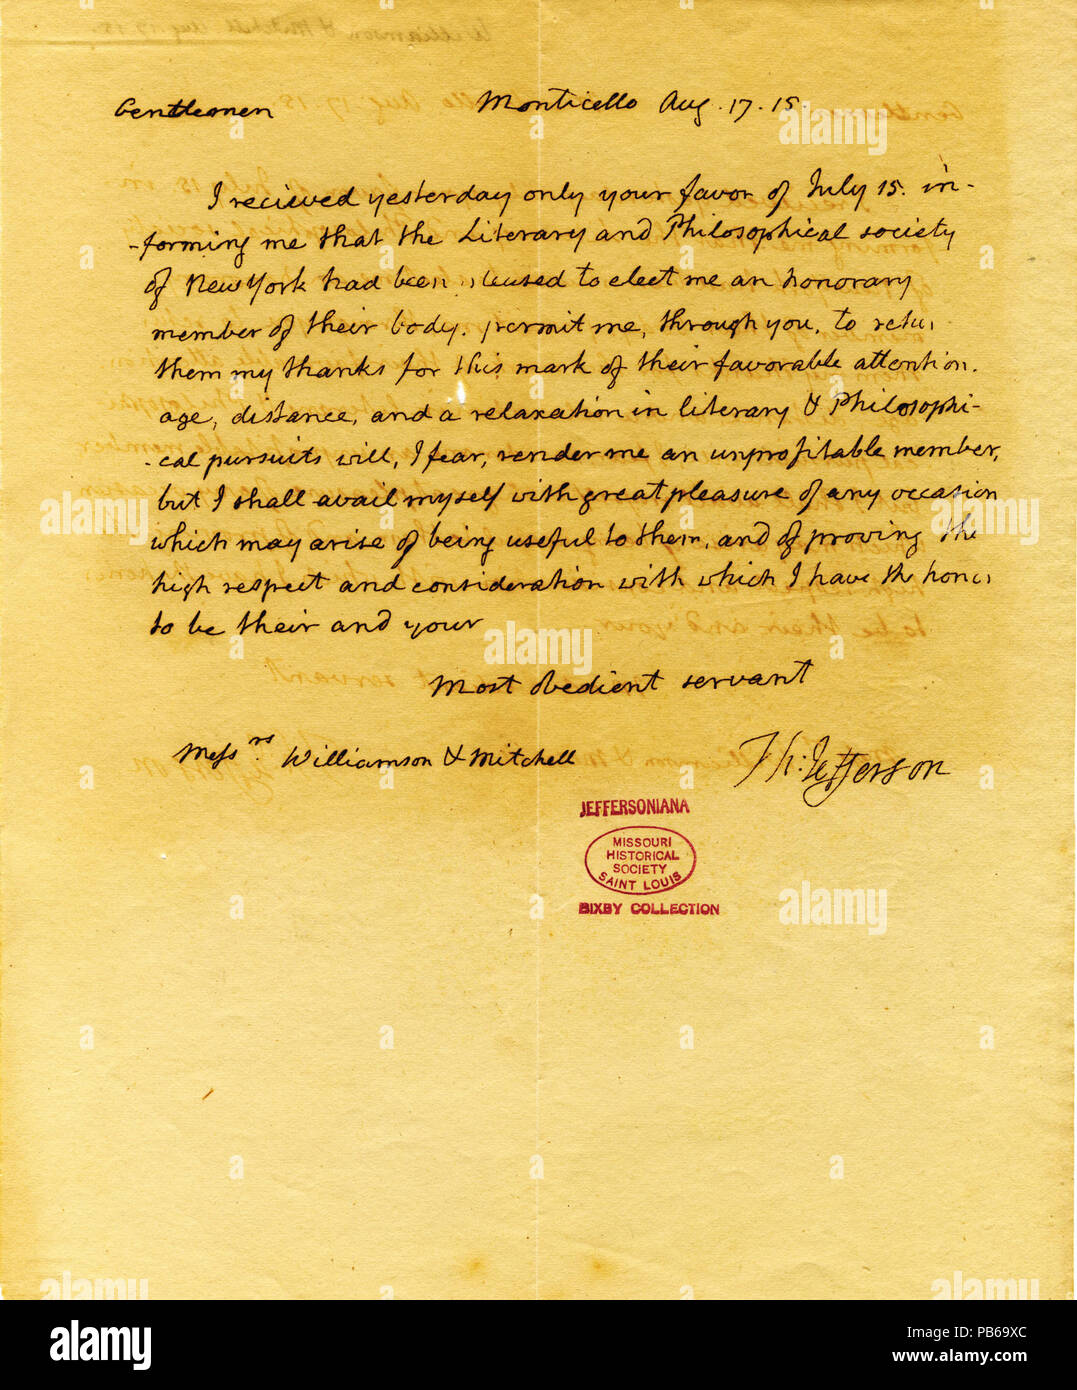 Gentlemen Monticello Aug. 17. 15.
I recieved yesterday only your favor of July 15. in-
-forming me that the Literary and Philosophical society
of New York had been pleased to elect me an honorary
member of their body. permit me, through you, to retu
them my thanks for this mark of their favorable attention.
age, distance, and a relaxation in literary & Philosophi-
-cal pursuits will, I fear, render me an unprofitable member,
but I shall avail myself with great pleasure of any occasion
which may arise of being useful to them, and of proving the
high respect and consideration with which I have the honor
to be their and your
Most obedient servant
Th: Jefferson
Messrs Williamson & Mitchell
JEFFERSONIANA
MISSOURI
HISTORICAL
SOCIETY
SAINT LOUIS
BIXBY COLLECTION
alamy
Image ID: PB69XC
www.alamy.com